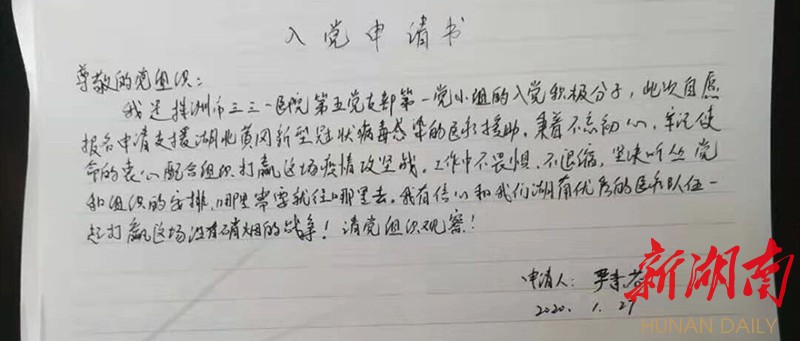 入党申请书
尊敬的党组织：
我是株洲市三三一医院第五党支部第一党小组的入党积极分子，此次自愿
报名申请支援湖北黄冈新型冠状病毒感染的医疗援助，秉着不忘初心，牢记使
命的衷心配合组织打赢这场疫情攻坚战。工作中不畏惧、不退缩，坚决听从党
和组织的安排，哪里需要就往哪里去。我有信心和我们湖南优秀的医疗队伍一
起打赢这场没有硝烟的战争！请党组织观察！
申请人：严
2020.1.27
新湖南
HUNAN DAILY